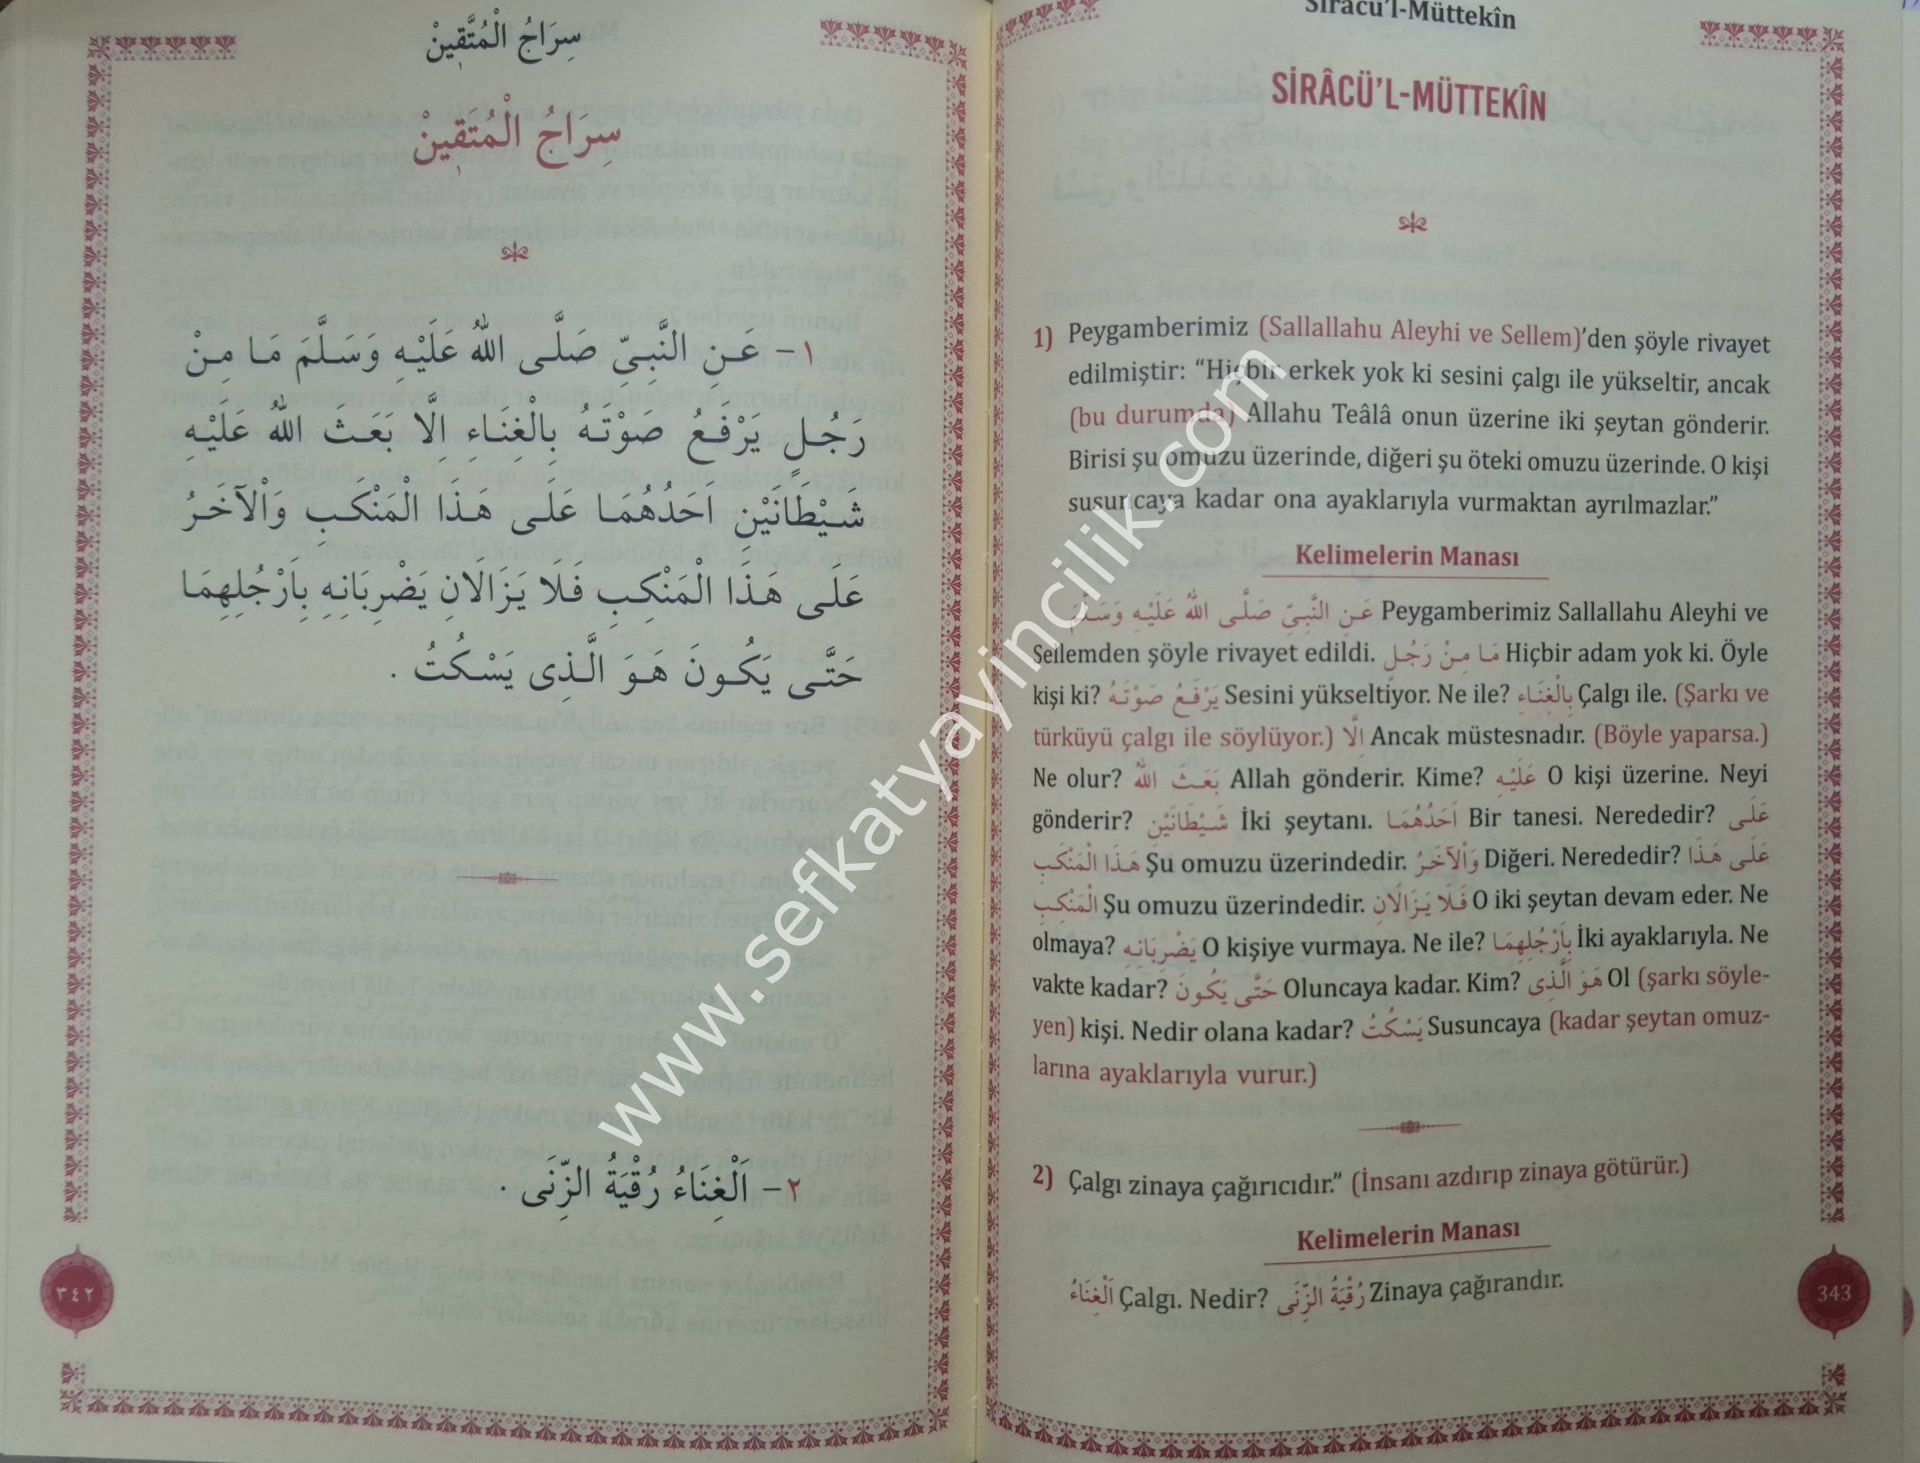 سِرَاجُ الْمُتَّقِينْ
سِرَاجُ الْمُتَّقِينْ
١- عَنِ النَّبِيِّ صَلَّى اللهُ عَلَيْهِ وَسَلَّمَ مَا مِنْ
رَجُلٍ يَرْفَعُ صَوْتَهُ بِالْغِنَاءِ اِلَّا بَعَثَ اللهُ عَلَيْهِ
شَيْطَانَيْنِ اَحَدُهُمَا عَلَى هَذَا الْمَنْكَبِ وَالْآخَرُ
عَلَى هَذَا الْمَنْكِبِ فَلَا يَزَالَانِ يَضْرِبَانِهِ بِاَرْجُلِهِمَا
حَتَّى يَكُونَ هَوَ الَّذِى يَسْكُتُ .
٢- اَلْغِنَاءُ رُقْيَةُ الزِّنَى .
٣٤٢
Sirâcü'l-Müttekîn
SİRÂCÜ'L-MÜTTEKÎN
1) Peygamberimiz (Sallallahu Aleyhi ve Sellem)'den şöyle rivayet
edilmiştir: “Hiçbir erkek yok ki sesini çalgı ile yükseltir, ancak
(bu durumda) Allahu Teâlâ onun üzerine iki şeytan gönderir.
Birisi şu omuzu üzerinde, diğeri şu öteki omuzu üzerinde. O kişi
susuncaya kadar ona ayaklarıyla vurmaktan ayrılmazlar.”
Kelimelerin Manası
عَنِ النَّبِيِّ صَلَّى اللهُ عَلَيْهِ وَسَلَّمَ Peygamberimiz Sallallahu Aleyhi ve
Sellemden şöyle rivayet edildi. مَا مِنْ رَجُلٍ Hiçbir adam yok ki. Öyle
kişi ki? يَرْفَعُ صَوْتَهُ Sesini yükseltiyor. Ne ile? بِالْغِنَاءِ Çalgı ile. (Şarkı ve
türküyü çalgı ile söylüyor.) اِلَّا Ancak müstesnadır. (Böyle yaparsa.)
Ne olur? بَعَثَ اللهُ Allah gönderir. Kime? عَلَيْهِ O kişi üzerine. Neyi
gönderir? شَيْطَانَيْنِ İki şeytanı. اَحَدُهُمَا Bir tanesi. Nerededir? عَلَى
هَذَا الْمَنْكَبِ Şu omuzu üzerindedir. وَالْآخَرُ Diğeri. Nerededir? عَلَى هَذَا
الْمَنْكِبِ Şu omuzu üzerindedir. فَلَا يَزَالَانِ O iki şeytan devam eder. Ne
olmaya? يَضْرِبَانِهِ O kişiye vurmaya. Ne ile? بِاَرْجُلِهِمَا İki ayaklarıyla. Ne
vakte kadar? حَتَّى يَكُونَ Oluncaya kadar. Kim? هَوَ الَّذِى Ol (şarkı söyle-
yen) kişi. Nedir olana kadar? يَسْكُتُ Susuncaya (kadar şeytan omuz-
larına ayaklarıyla vurur.)
2) Çalgı zinaya çağırıcıdır.” (İnsanı azdırıp zinaya götürür.)
Kelimelerin Manası
اَلْغِنَاءُ Çalgı. Nedir? رُقْيَةُ الزِّنَى Zinaya çağırandır.
343
www.sefkatyayincilik.com